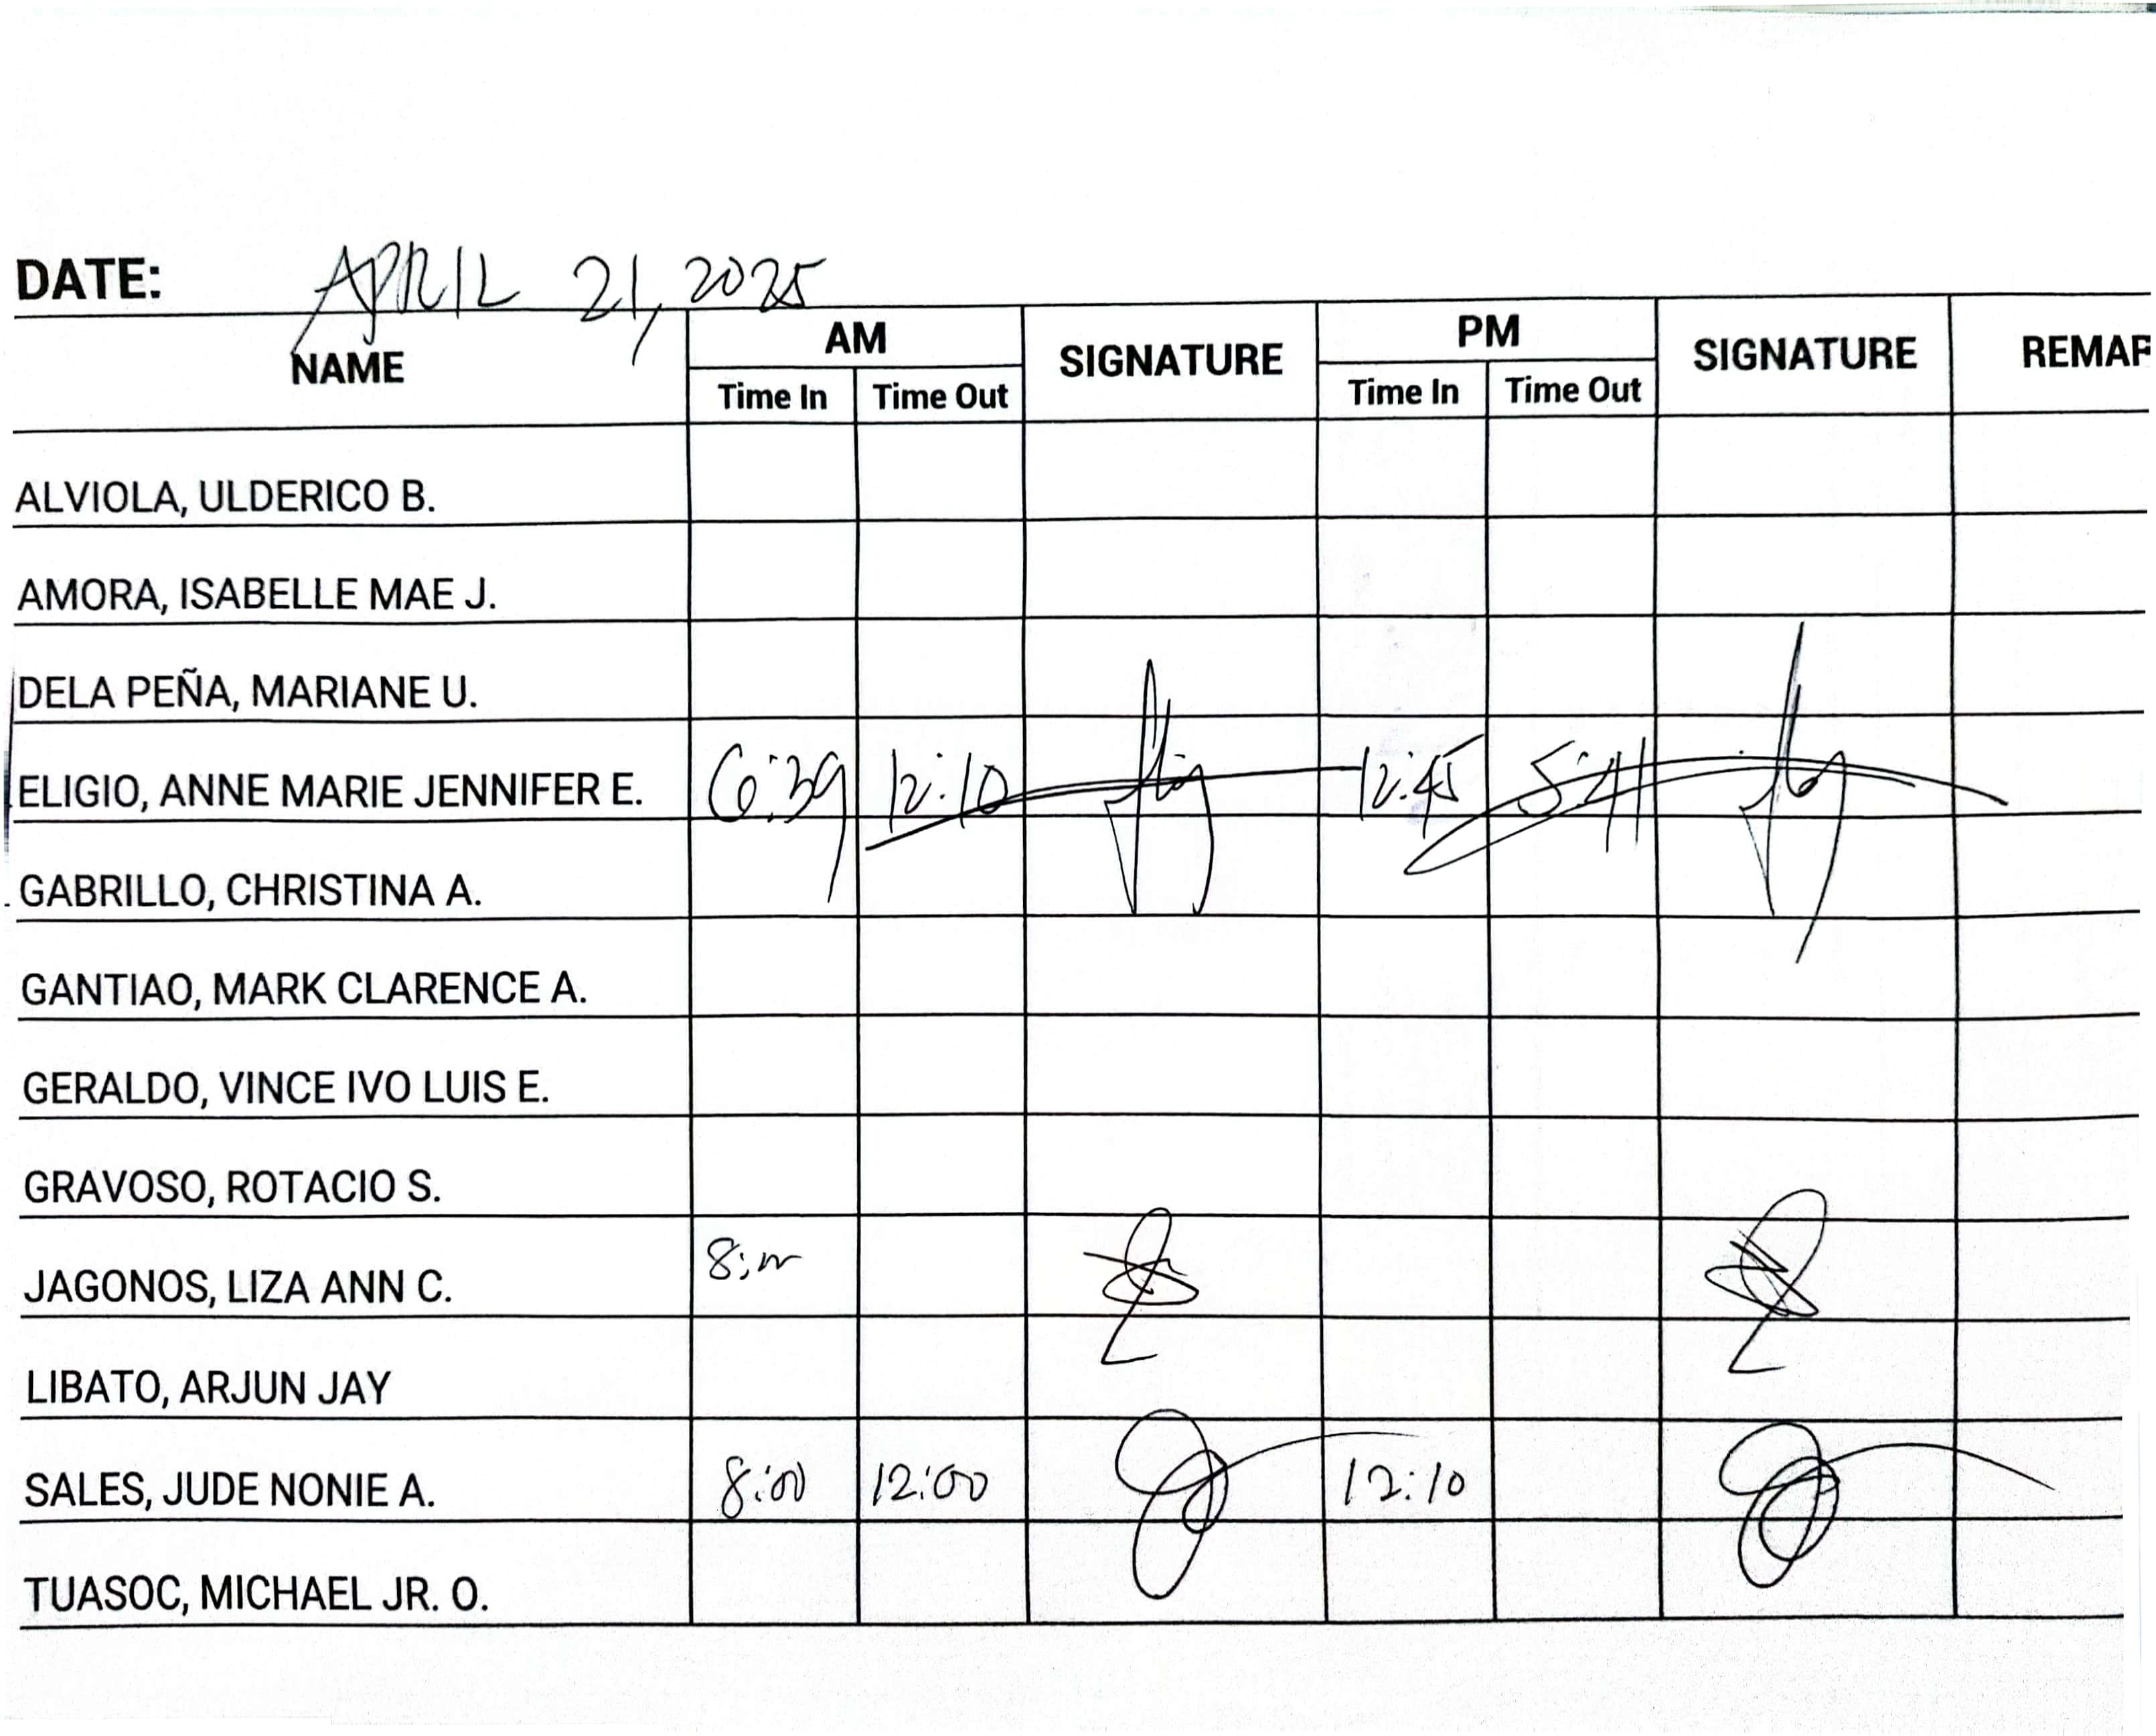 DATE: APRIL 21, 2025
NAME AM SIGNATURE PM SIGNATURE REMAR
Time In Time Out Time In Time Out
ALVIOLA, ULDERICO B.
AMORA, ISABELLE MAE J.
DELA PEÑA, MARIANE U.
ELIGIO, ANNE MARIE JENNIFER E. 6:39 12:10 12:45 5:41
GABRILLO, CHRISTINA A.
GANTIAO, MARK CLARENCE A.
GERALDO, VINCE IVO LUIS E.
GRAVOSO, ROTACIO S.
JAGONOS, LIZA ANN C.
LIBATO, ARJUN JAY
SALES, JUDE NONIE A. 8:00 12:00 12:10
TUASOC, MICHAEL JR. O.